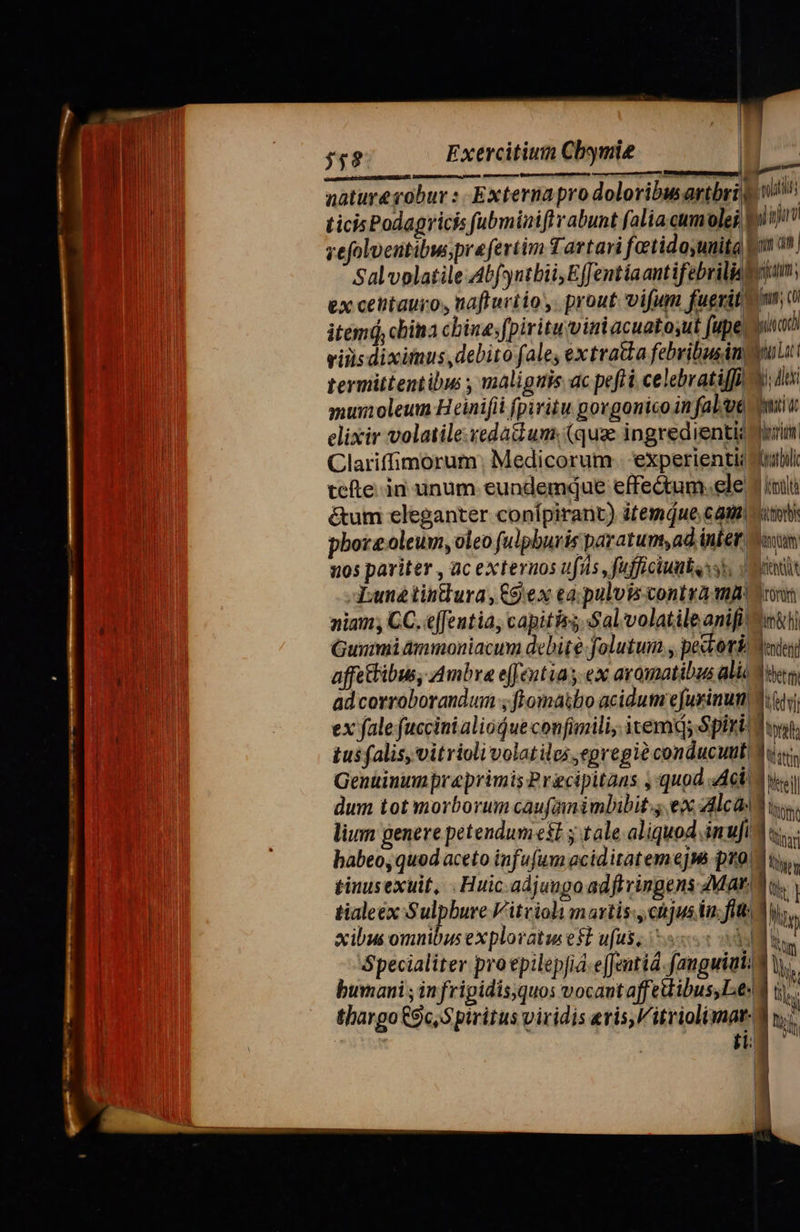 558 Exercitium Chymiæ
naturæ robur: Externa pro doloribus arthri
ticis Podagricis ſubminiſtrabunt ſalia cum olei
reſolventibus, præſertim Tartari fœtido, unita
Sal volatile Abſynthii, Eſſentia antifebrilis
ex centauro, naſturtio, prout viſum fuerit
itemq; china chinæ, ſpiritu vini acuato, ut ſupe
riùs diximus, debito ſale, extracta febribus in
termittentibus; malignis ac peſti celebratiſſi
mum oleum Heinſii ſpiritu gorgonico in ſal ve
elixir volatile redactum (quæ ingredientia
Clariſſimorum Medicorum experientia
teſte in unum eundemque effectum ele
ctum eleganter conſpirant) itemque cam
phoræ oleum, oleo ſulphuris paratum, ad inter
nos pariter, ac externos uſus, ſufficiunt.
Lunæ tinctura, & ex ea pulvis contra ma
niam, CC. eſſentia, capitis; Sal volatile aniſi
Gummi ammoniacum debitè ſolutum, pectoris
affectibus, Ambræ eſſentia; ex aromatibus alia
ad corroborandum; ſtomacho acidum eſurinum
ex ſale ſuccini alioque conſimili, itemq; Spiri
tus ſalis, vitrioli volatiles, egregiè conducunt
Genuinum præprimis Præcipitans, quod Aci
dum tot morborum cauſam imbibit, ex Alca
lium genere petendum eſt; tale aliquod in uſu
habeo, quod aceto infuſum aciditatem ejus pro
tinus exuit. Huic adjungo adſtringens Mar
tiale ex Sulphure Vitrioli martis, cujus in flu
xibus omnibus exploratus eſt uſus.
Specialiter pro epilepſiâ eſſentiâ ſanguinis
humani; in frigidis, quos vocant affectibus, Le
thargo &c, Spiritus viridis æris, Vitrioli mar-
ti